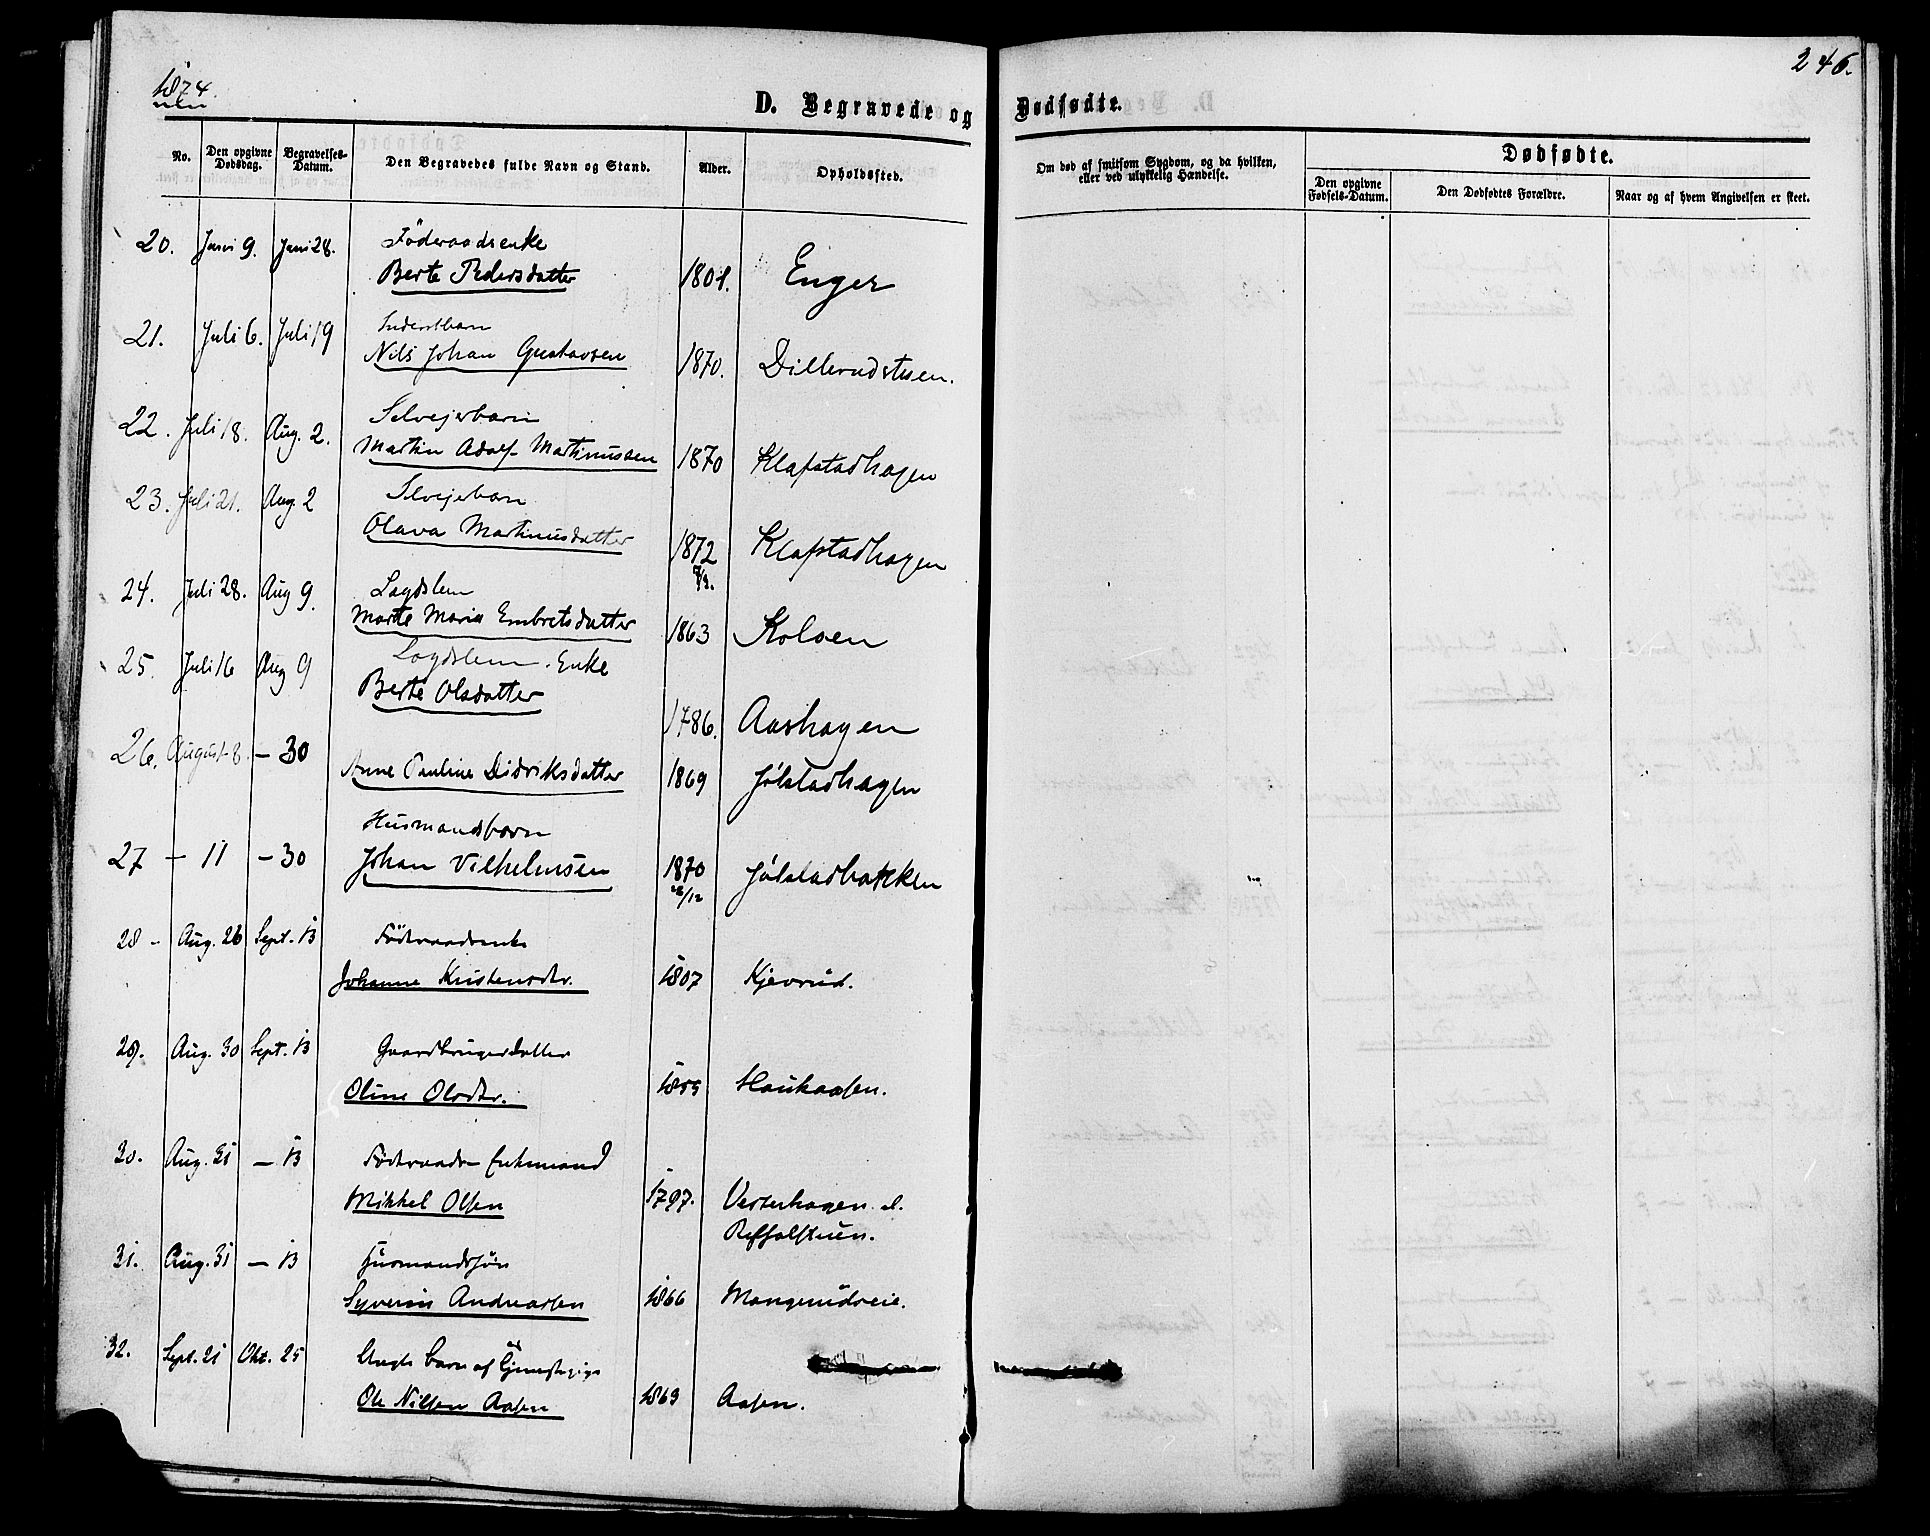 1874.
246.
D. Begravede og Dødfødte.
No. Den opgivne Dødsdag. Begravelses-Datum. Den Begravedes fulde Navn og Stand. Alder. Opholdssted. Om død af smitsom Sygdom, og da hvilken, eller ved ulykkelig Hændelse.
Dødfødte.
Den opgivne Fødsels-Datum. Den Dødfødtes Forældre. Naar og af hvem Angivelsen er skeet.
20. Juni 9. Juni 28. Föderaadsenke
Berte Pedersdatter 1801. Enger
21. Juli 6. Juli 19
Nils Johan Gustavsen 1870. Dillerudstuen.
22. Juli 18. Aug. 2. Selvejerbarn
Martin Adolf Martinussen 1870 Klapstadhagen
23. Juli 21. Aug. 2 Selvejerbarn
Olava Martinusdatter 1872 Klapstadhagen
24. Juli 28. Aug 9. Lægdslem
Marte Maria Embretsdatter 1863 Kolsen
25. Juli 16 Aug 9 Lægdslem. Enke
Berte Olsdatter 1786. Aashagen
26. August 8. — 30
Anne Pauline Didriksdatter 1869 Jølstadhagen
27 — 11 — 30 Husmandsbarn
Johan Vilhelmsen 1870 Jølstadbakken
28 - Aug. 26 Sept. 13 Föderaadsenke
Johanne Kristensdtr. 1807 Kjevrud.
29. Aug. 30 Sept. 13 Gaardbrugerdatter
Oline Olsdtr. Haukaasen.
30. Aug. 31 — 13 Föderaads Enkemand
Mikkel Olsen 1797. Vesterhagen
31. Aug. 31 — 13 Husmandssøn
Syverin Andreassen 1866 Mangerudseie.
32. Sept. 21 Okt. 25 barn af
Ole Nilsen Aasen 1869 Aasen.